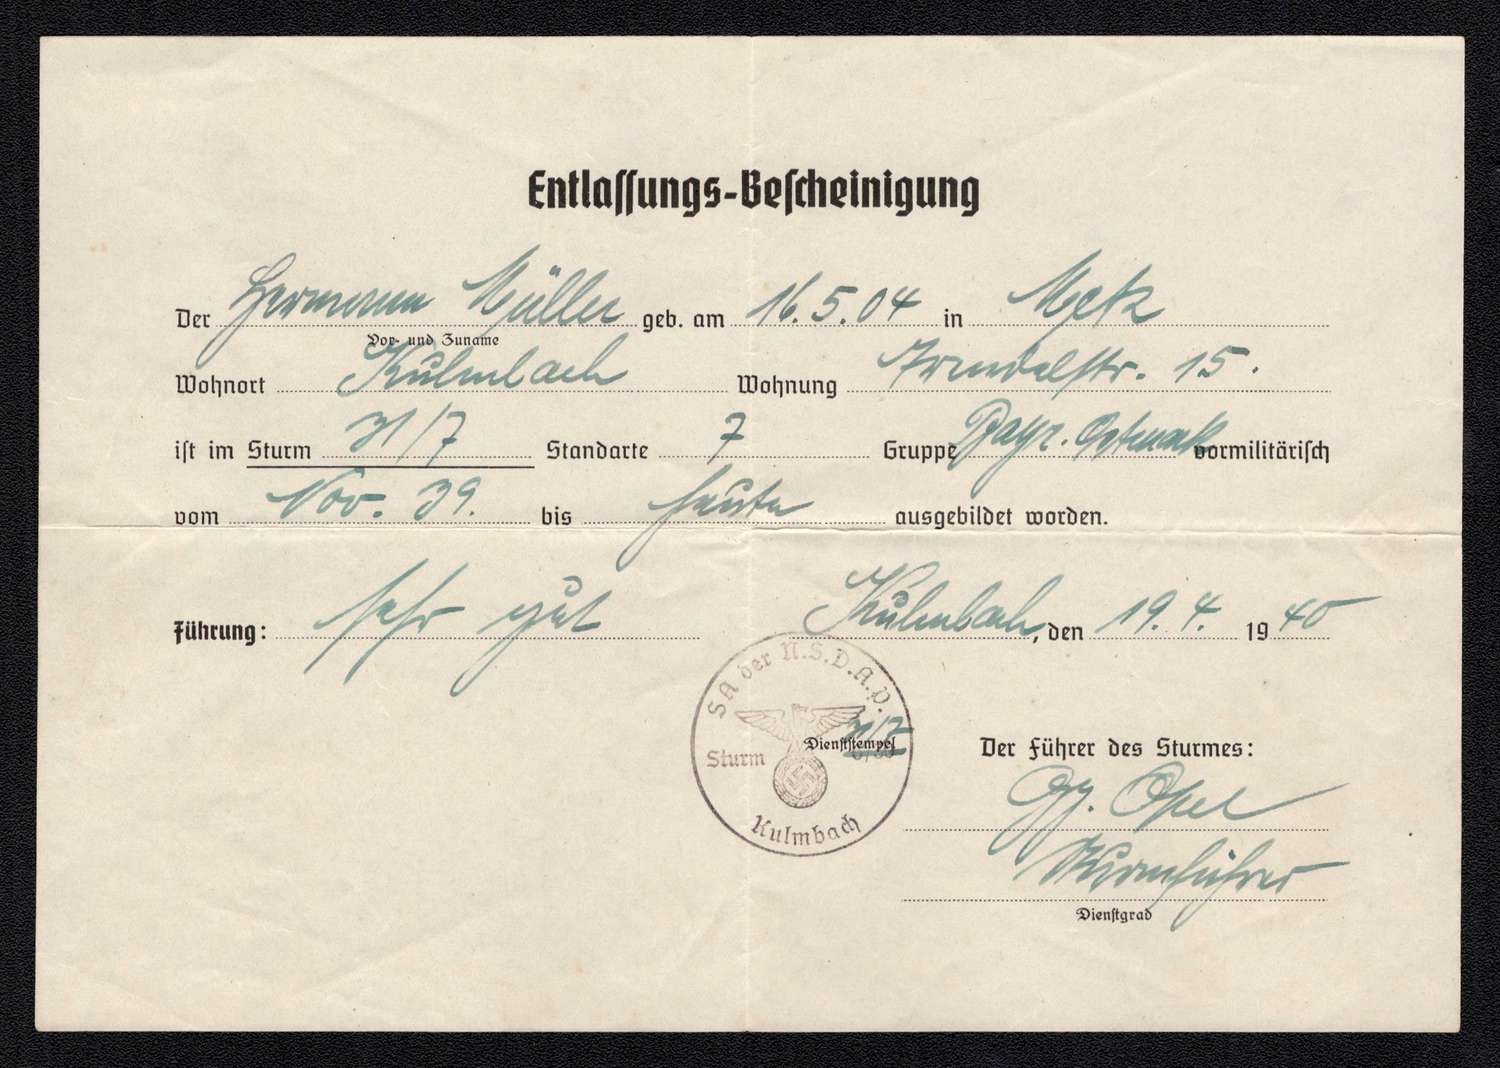 Entlassungs-Bescheinigung
Der Hermann Müller geb. am 16.5.04 in Metz
Vor- und Zuname
Wohnort Kulmbach Wohnung 15.
ist im Sturm 31/7 Standarte 7 Gruppe Bayr. Ostmark vormilitärisch
vom Nov. 39. bis heute ausgebildet worden.
Führung: sehr gut Kulmbach, den 19.4. 1940
SA der N.S.D.A.P.
Sturm
Dienststempel
Kulmbach
Der Führer des Sturmes:
Gg. Opel
Sturmführer
Dienstgrad